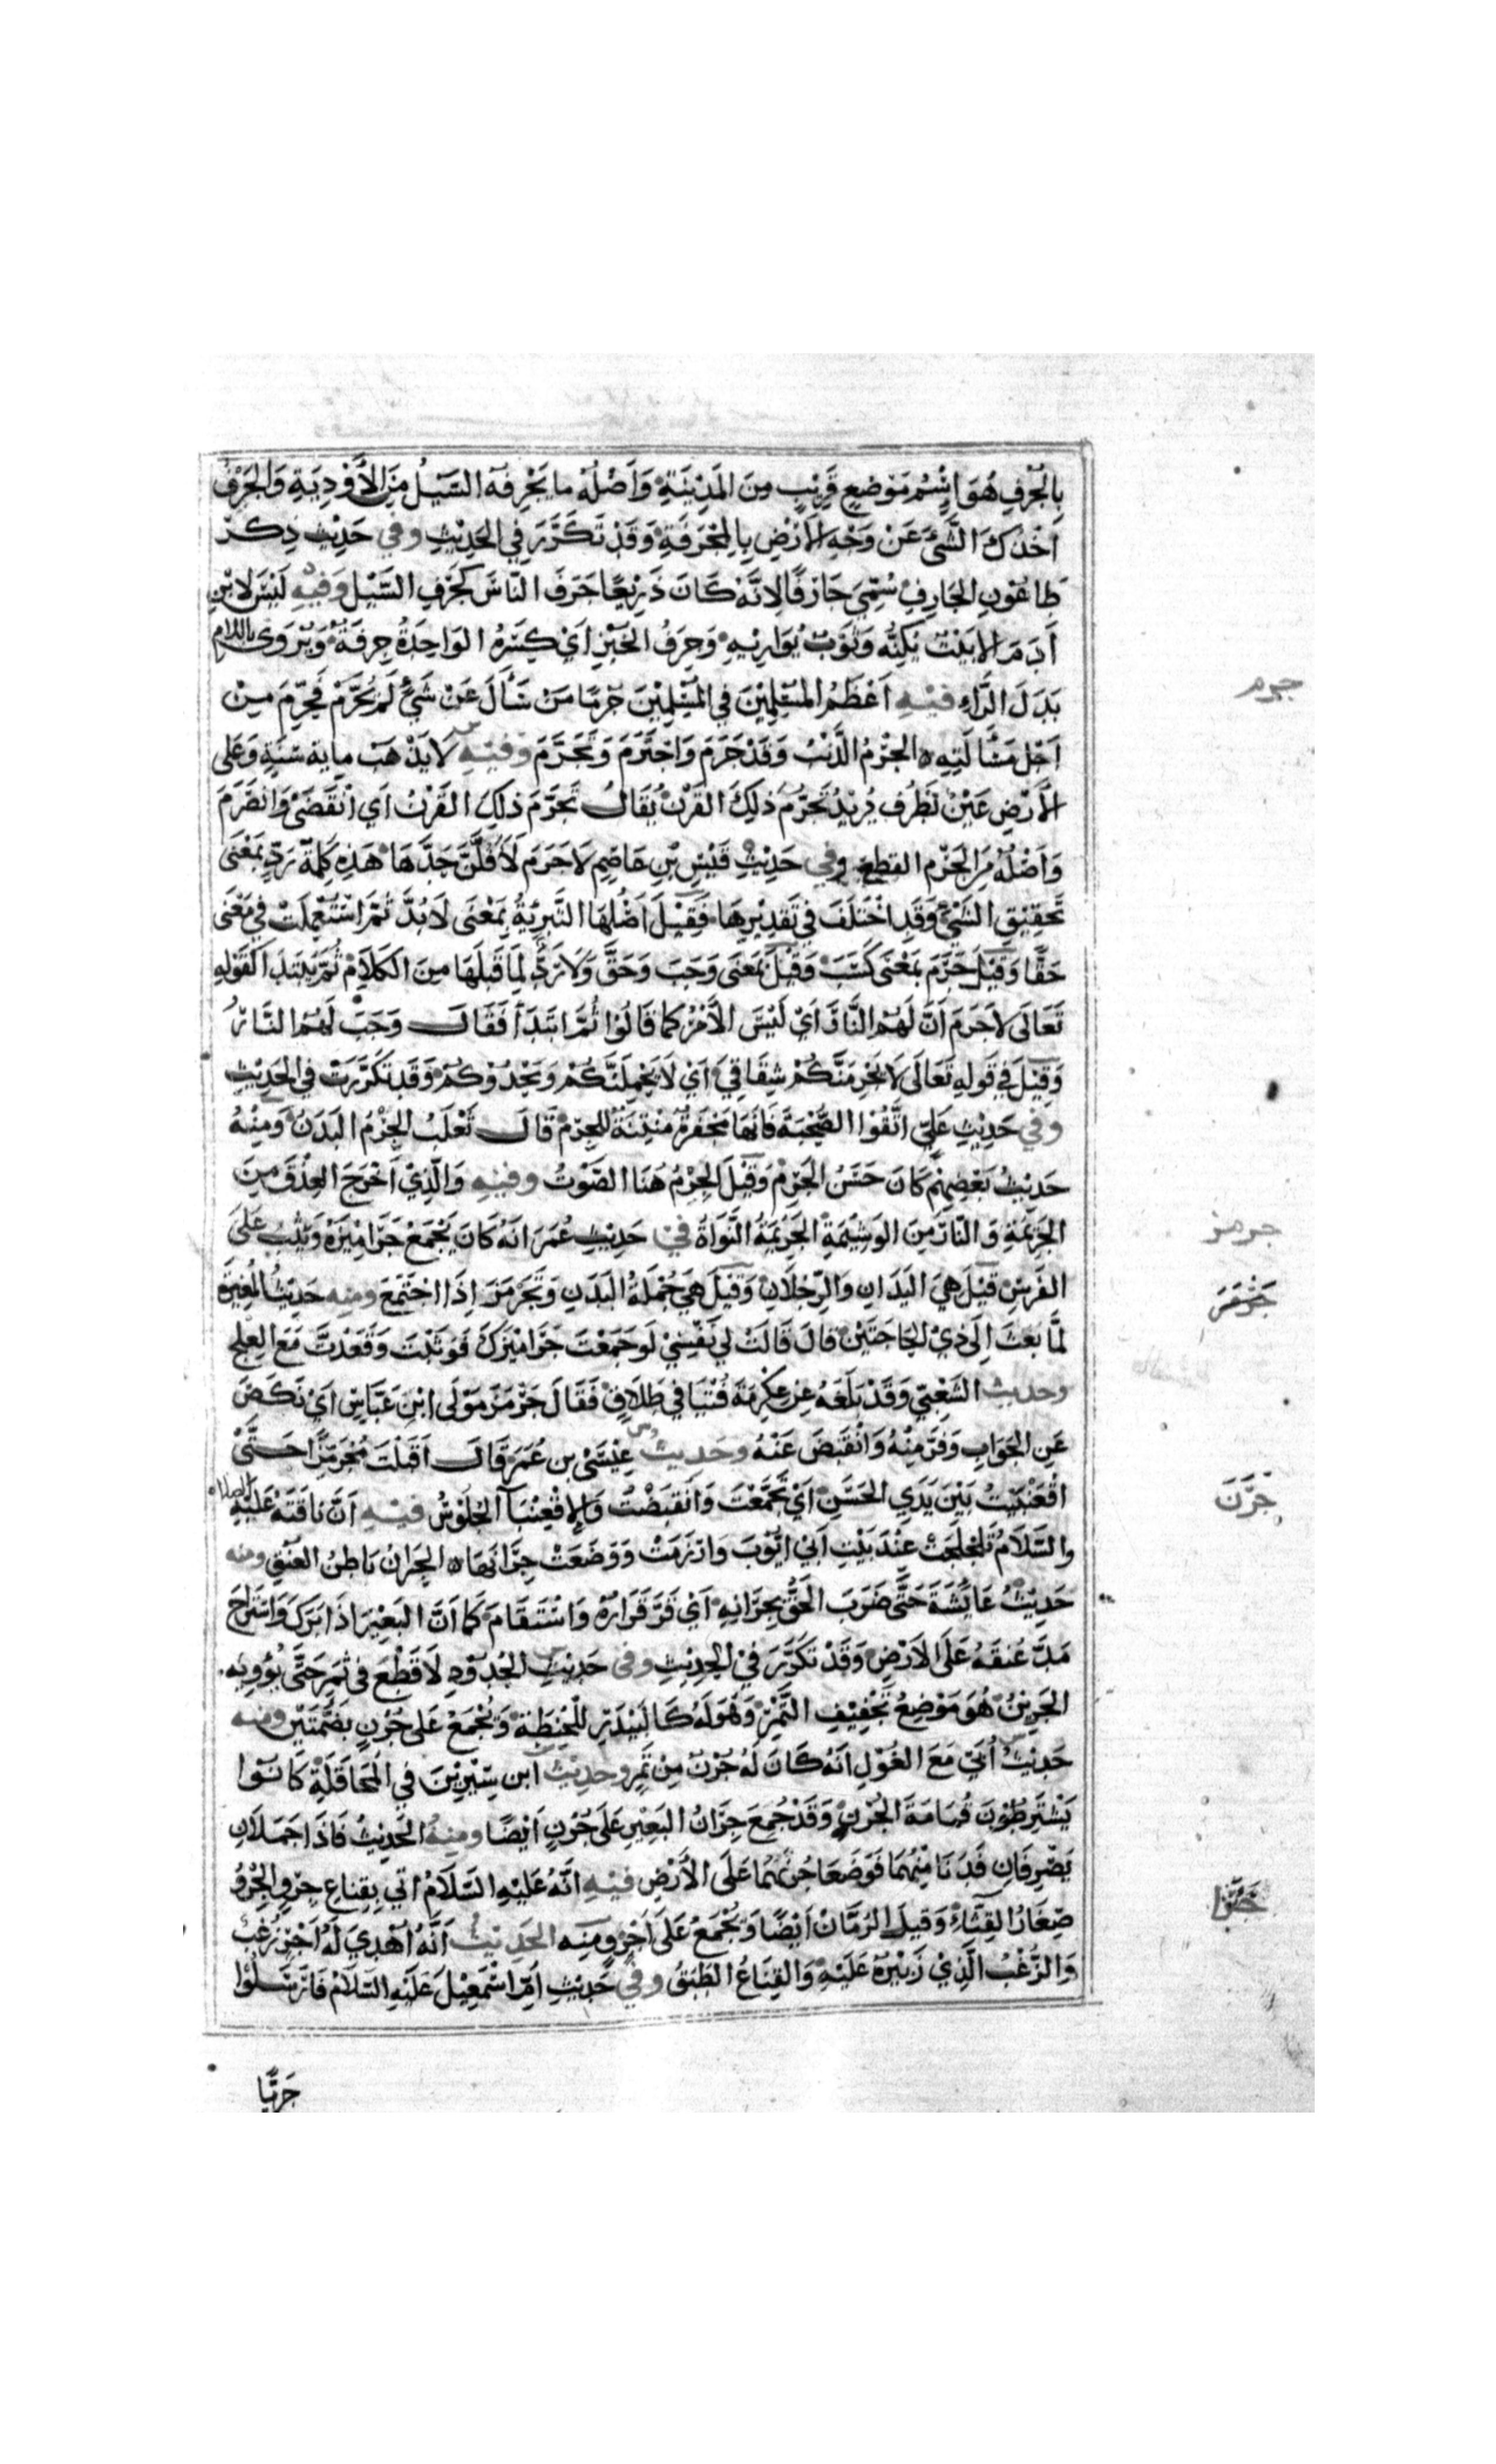 بِالْجُرْفِ هُوَ اِسْمُ مَوْضِعٍ قَرِيْبٍ مِنَ المَدِيْنَةِ وَاَصْلُهُ ما يَجْرِفُهُ السَّيْلُ مِنَ الأَوْدِيَةِ وَالجَرْفُ
اَخْذُكَ الشَّىَ عَنْ وَجْهِ الاَرْضِ بِالمِجْرَفَةِ وَقَدْ تَكَرَّرَ فِي الحَدِيْثِ وفي حَدِيْثِ ذِكر
طَاعُوْنِ الجَارِفِ سُمِّيَ جَارِفًا لِانَّهُ كَانَ ذَرِيْعًا جَرَفَ النَّاسَ كَجَرْفِ السَّيْلِ وَفيْهِ لَيْسَ لابْنِ
أَدَمَ الا بَيْتٌ يُكِنُّه وَثَوْبٌ يُوَارِيْهِ وَجِرَفُ الخُبْزِ اَيْ كِسَرُهُ الوَاحِدَةُ جِرفَةٌ وَيُرْوَى باللام
بَدَلَ الرَّاءِ فيْهِ اَعْظَمُ المُسْلِمِيْنَ فِي المُسْلِمِيْنَ جُرْمًا مَنْ سَأَلَ عَنْ شَيٍْ لَمْ يُحَرَّمْ فَحُرِّمَ مِنْ
اَجْلِ مَسْالَتِهِ ه الجُرْمُ الذَّنْبُ وَقَدْ جَرَمَ وَاجْتَرَمَ وَتَجَرَّمَ وَفيْهِ لا يَذْهَبُ مِايةُ سَنَةٍ وَعَلى
الأَرْضِ عَيْنٌ تَطْرِف يُرِيْدُ تَجَرُّمَ ذلِكَ القَرْنِ يُقَالُ تَجَرَّمَ ذلِكَ القَرْنُ اَي اَنْقَضَى وَانْصَرَمَ
وَاَصْلُهُ مِنَ الجَرْم القطع وفي حَدِيْثِ قَيْسِ بْنِ عَاصِمٍ لاَ جَرَمَ لأَفُلَّنَّ حَدَّهَا هَذِهِ كَلِمَةٌ تَرِدُ بِمَعْنَى
تَحْقِيْقِ الشَّيْءِ وَقَدِ اخْتَلَفَ فِي تَقْدِيْرِهَا فَقِيْلَ اَصْلُهَا التَّبرِيَةُ بِمَعْنَى لاَ بُدَّ ثُمَّ اسْتُعْمِلَتْ فِي مَعْنَى
حَقًّا وَقِيْلَ جَرَمَ بِمَعْنَى كَسَبَ وَقِيْلَ بِمَعْنَى وَجَبَ وَحَقَّ وَلاَ رَدٌّ لِمَا قَبْلَهَا مِنَ الكَلاَمِ ثُمَّ يُبْتَدَا كَقَوْلِهِ
تَعَالَى لاَ جَرَمَ اَنَّ لَهُمُ النَّارَ اَيْ لَيْسَ الأَمْرُ كما قَالُوْا ثُمَّ ابْتَدَأ فَقَالَ وَجَبَ لَهُمُ النَّارُ
وَقِيْلَ فِي قَولِهِ تَعَالَى لاَ يَجْرِمَنَّكُمْ شِقَاقِيْ اَيْ لاَ يَحْمِلَنَّكُمْ وَيَحْدُوْكُمْ وَقَد تَكَرَّرَتْ في الحَدِيْثِ
وفي حَدِيْثِ عَلِيٍّ اتَّقُوْا الصُّبْحَةَ فَانَّهَا مَجْفَرَةٌ مُنْتِنَةٌ لِلْجِرْم قَالَ ثَعْلَبُ الجِرْمُ البَدَنُ وَمِنْهُ
حَدِيْثُ بَعْضِهِمْ كَانَ حَسَنُ الجِرْمِ وَقِيْلَ الجِرْمُ هُنَا الصَّوْتُ وفيْهِ وَالَّذِيْ اَخْرَجَ العِذْقَ مِنَ
الجَرِيْمَةِ وَ النَّارَ مِنَ الوَثِيْمَةِ الجَرِيْمَةُ النَّوَاةُ في حَدِيْثِ عُمَرَ انَّهُ كَانَ يَجْمَعُ جَرَامِيْزَهُ وَيَثِبُ عَلَى
الفَرَسِ قِيْلَ هِيَ اليَدَانِ وَالرِّجْلَانِ وَقِيْلَ هِيَ جُمْلَةُ البَدَنِ وَتَجَرْمَزَ اِذَا اجْتَمَعَ ومنه حَدِيْثُ المُغِيْرَةِ
لَمَّا بَعَثَ اِلَى ذِيْ الحَاجَتَيْنِ قَالَ قَالَتْ لِي نَفْسِيْ لَوجَمَعْتَ جَرَامِيْزَكَ فَوَثَبْتَ وَقَعَدْتَ مَعَ العِلْجِ
وحديث الشَعْبِي وَقَدْ بَلَغَهُ عن عِكْرِمَةَ فُتْيَا فِي طَلَاقٍ فَقَالَ جَرْمَزَ مَوْلَى ابْنِ عَبَّاسٍ اَيْ نَكَصَ
عَنِ الجَوَابِ وَفَرَّ مِنْهُ وَانْقَبَضَ عَنْهُ وحَديث عِيْسَى بن عُمَرَ قَالَ اَقْبَلْتُ مُجْرَمِّزًا حَتَّى
اقْعَنْبَيْتُ بَيْنَ يَدَيِ الحَسَنِ اَيْ تَجَمَّعْتَ وَانْقَبَضْتُ وَالِاقْعِنْبَآ الجُلُوْسُ فيْهِ اَنَّ نَاقَتَهُ عَلَيْهِ الصلاه
والسَّلاَمُ تَلَحْلَحَتْ عِنْدَ بَيْتِ اَبي ايُّوْبَ وَارْزَمَتْ وَوَضَعَتْ جِرَانَهَا ه الجِرَانُ بَاطِنُ العُنُقِ ومنه
حَدِيْثُ عَايشَةَ حَتَّى ضَرَبَ الحَقُّ بِجِرَانِهِ اَيْ قَرَّ قَرَارُهُ وَاسْتَقَامَ كَمَا اَنَّ البَعِيْرَ اذَا بَرَكَ وَاسْتَراحَ
مَدَّ عُنقَهُ عَلَى الاَرْضِ وَقَدْ تَكَرَّرَ فِيْ الحِدِيْثِ وفى حَدِيْثِ الحُدُوْدِ لاَ قَطْعَ فى ثَمَرٍ حَتَّى يُؤوِيَه
الجَرِيْنُ هُوَ مَوْضِعُ تَجْفِيْفِ التَّمْرِ وَهُوَ لَهُ كَالبَيْدَرِ لِلْحِنطَةِ وَيُجْمَعُ عَلى جُرُنٍ بِضَمَّتَيْنِ ومنه
حَدِيْثُ اُبَيّ مَعَ الغُوْلِ انَهُ كَانَ لَهُ جُرْنٌ مِنْ تَمْرٍ وحَدِيْثُ ابن سِيْرِيْنَ في المُحَاقَلَةِ كَانُوا
يَشْتَرِطُوْنَ قُمَامَةَ الجُرُنِ وَقَدْ جُمِعَ جِرَانُ البَعِيْرِ عَلَى جُرُنٍ اَيْضًا ومنهُ الحَدِيْثُ فَاذَا جَمَلاَنِ
يَصْرِفَانِ فَدَنَا مِنْهُمَا فَوَضَعَا جُرُنَهُمَا عَلَى الأَرْضِ فيْهِ انَّهُ عَلَيْهِ السَّلاَمُ اتي بِقِنَاع جِرْوٍ الجِرْوُ
صِغَارُ القِثَّاءِ وَقِيلَ الرُمَّانِ اَيْضًا وَيُجْمَعُ عَلَى اَجْرٍ ومنه الحَدِيْثُ اَنَّهُ اُهْدِيَ لَهُ اَجْرٍ زُغْبٌ
وَالزُغْبُ الَّذِيْ زَئْبَرُهُ عَلَيْهِ وَالقِنَاعُ الطَبَقُ وفي حَدِيْثِ اُمِّ اسْمٰعِيْلَ عَلَيْهِ السَّلامُ فَارْسَلُوْا
جَرِيًّا
جرم
جرمز
جَرَن